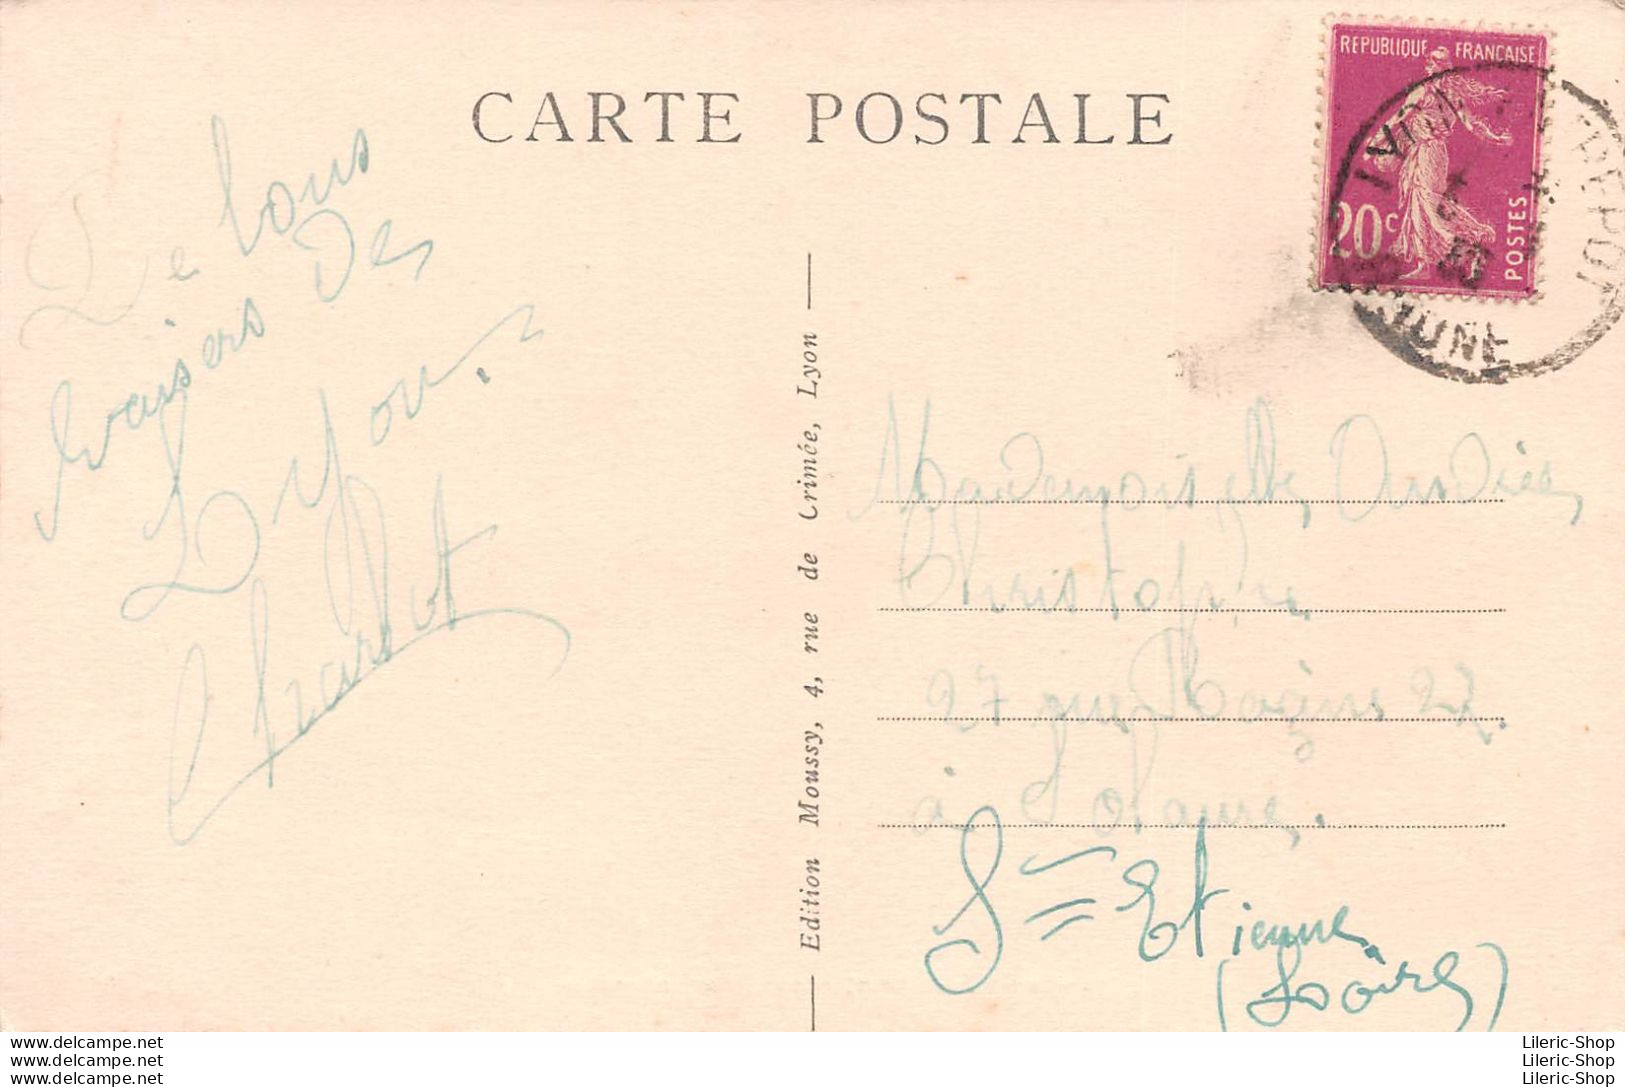 CARTE POSTALE
REPUBLIQUE FRANÇAISE
20c
POSTES
De bons
baisers de
Lyon.
Charlot
Edition Moussy, 4, rue de Crimée, Lyon
Mademoiselle Andrée
Christophre
27 rue 27.
à Solaure.
St Etienne
(Loire)
www.delcampe.net
www.delcampe.net
www.delcampe.net
Lileric-Shop
Lileric-Shop
Lileric-Shop